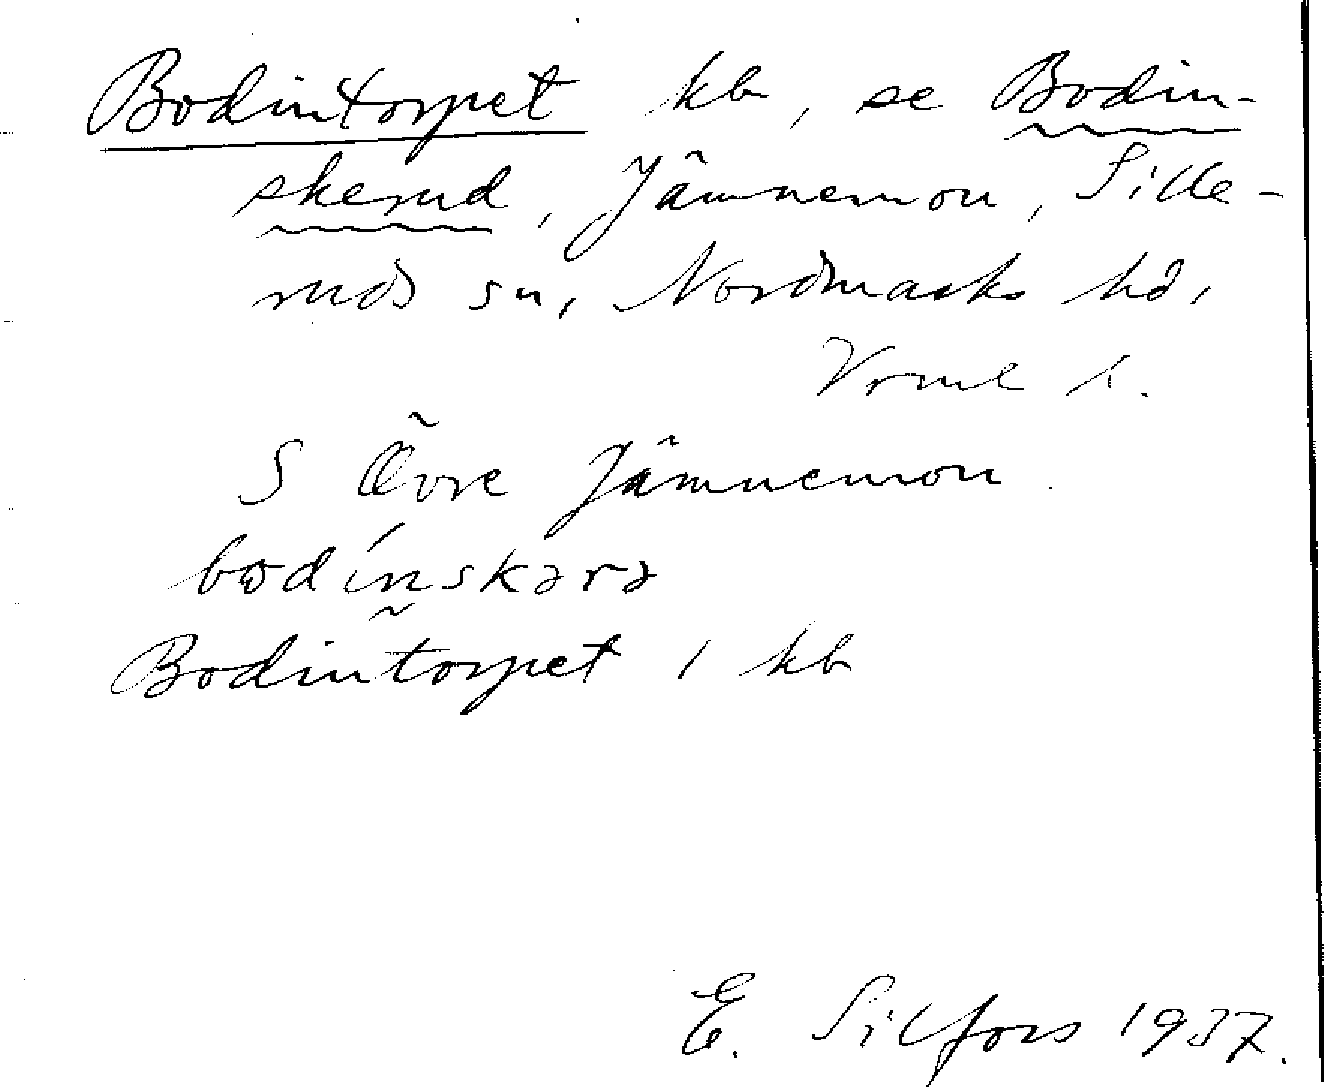 Bodintorpet kb, se Bodin-
skerud, Jämnemon, Sille-
ruds sn, Nordmarks hd,
Vrml l.
S Övre Jämnemon.
bodínskərə
Bodintorpet 1 kb
E. Silfors 1937.